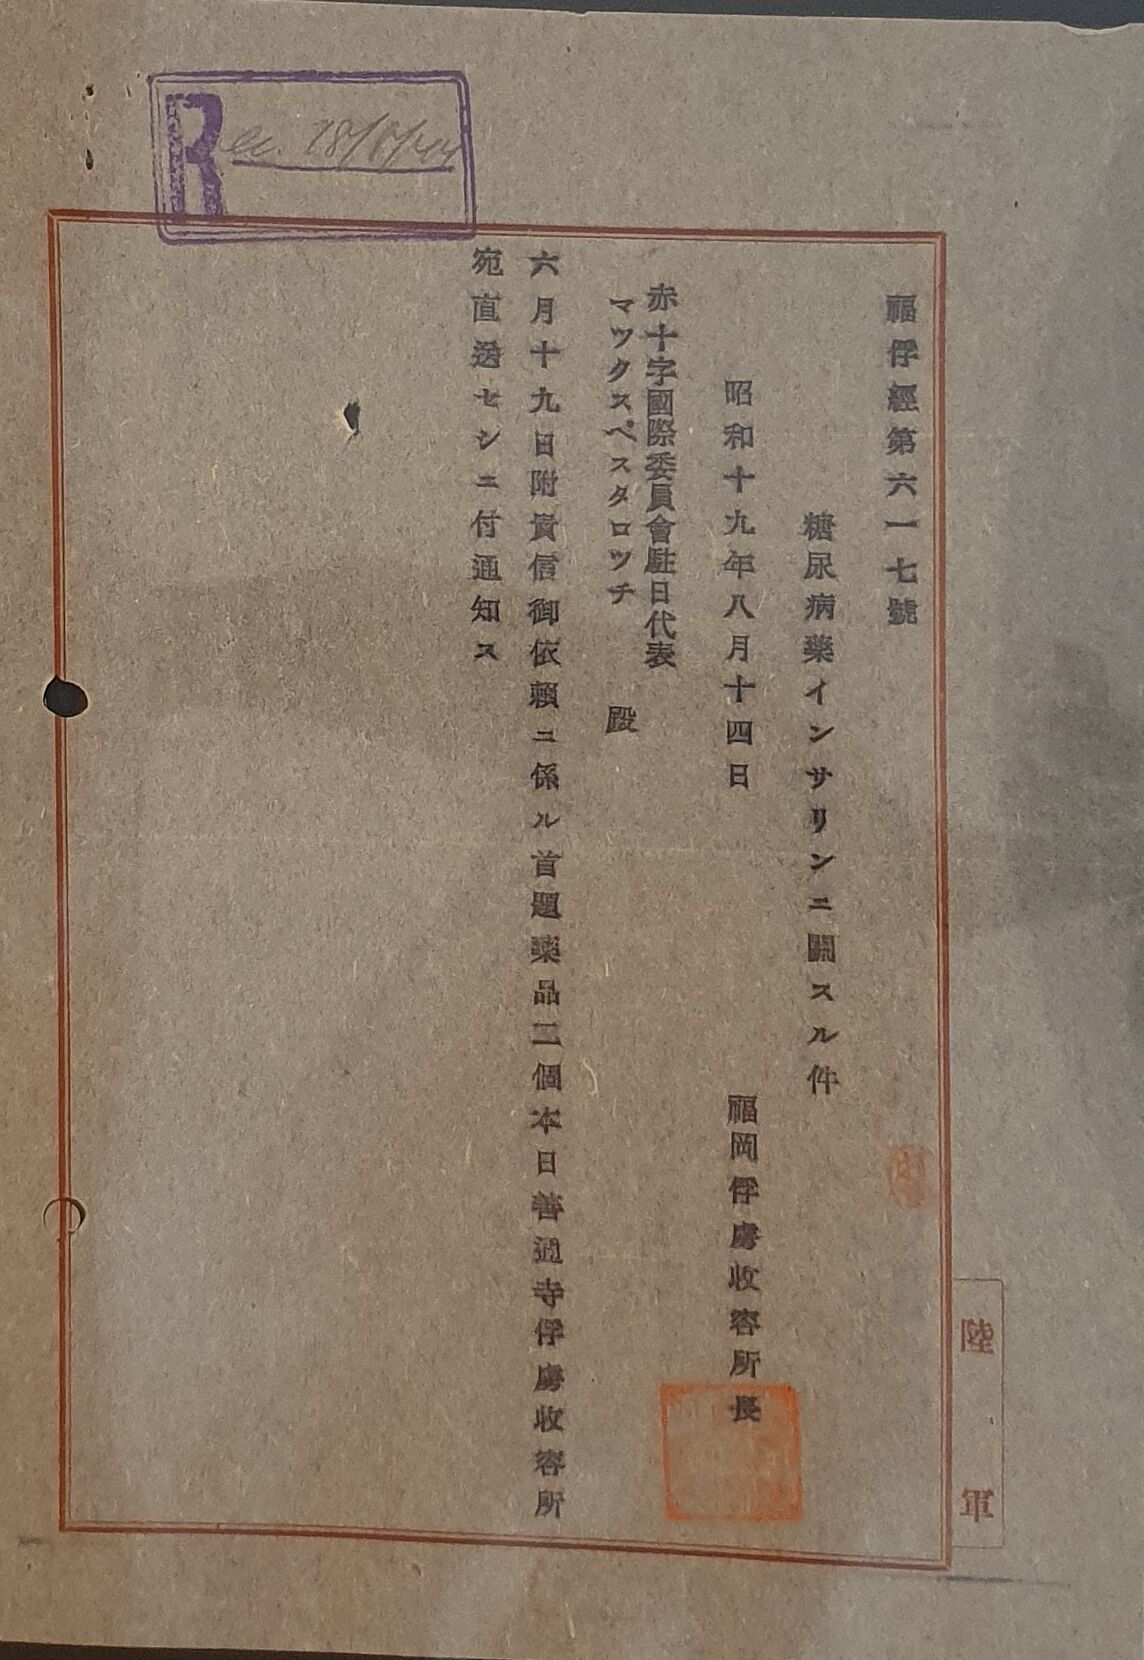 Rec. 18/8/44
福俘經第六一七號
糖尿病藥インサリンニ關スル件
昭和十九年八月十四日
福岡俘虜收容所長
赤十字國際委員會駐日代表
マツクスペスタロツチ 殿
六月十九日附貴信御依頼ニ係ル首題藥品二個本日善通寺俘虜收容所
宛直送セシニ付通知ス
陸軍